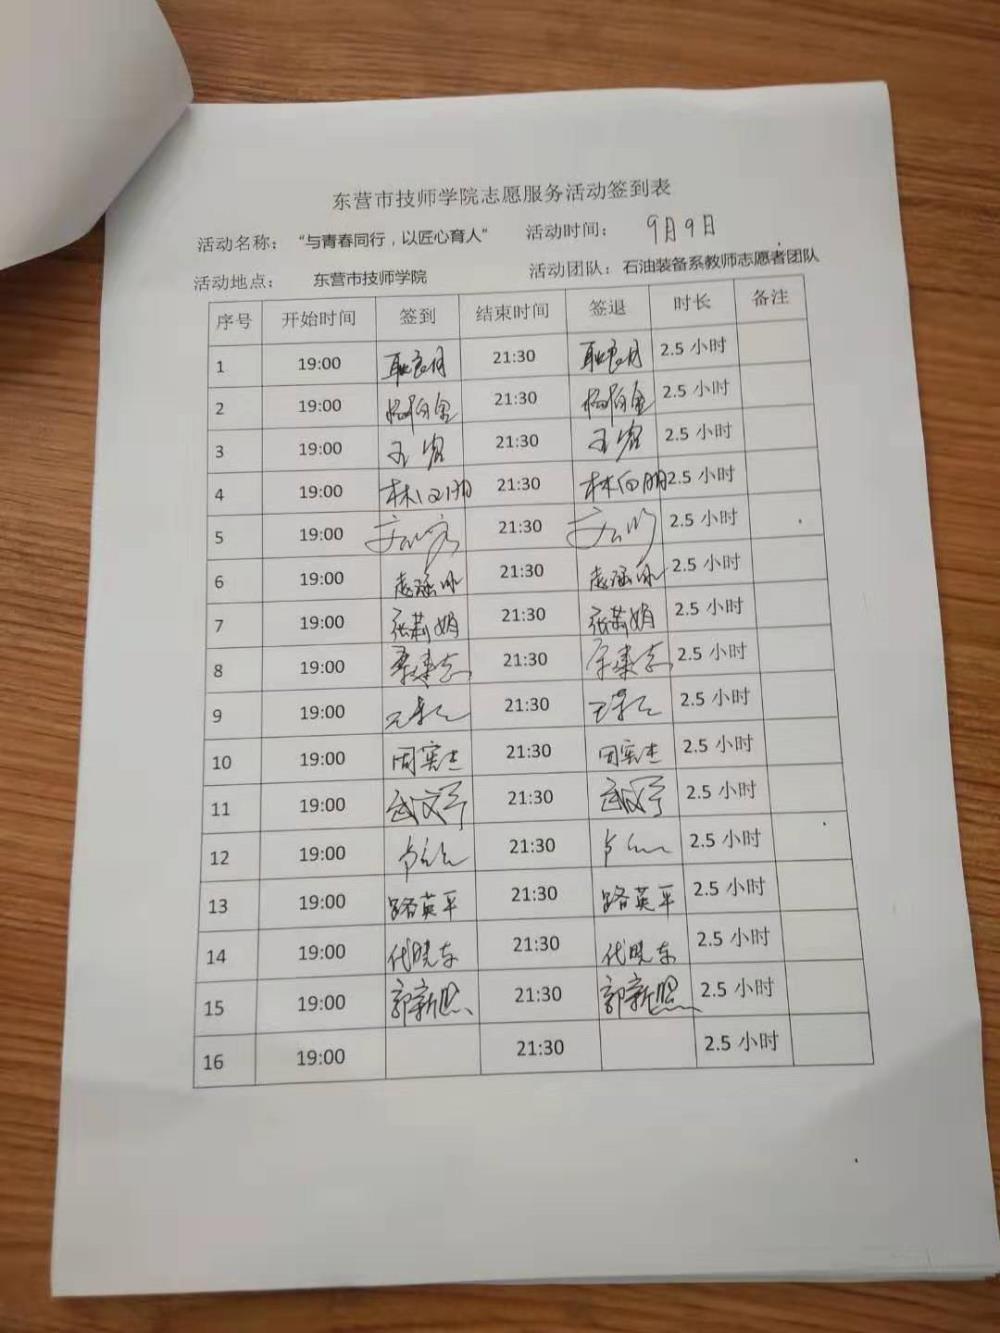 东营市技师学院志愿服务活动签到表
活动名称： “与青春同行，以匠心育人” 活动时间： 9月9日
活动地点： 东营市技师学院 活动团队：石油装备系教师志愿者团队
序号 开始时间 签到 结束时间 签退 时长 备注
1 19:00 耿良月 21:30 耿良月 2.5 小时
2 19:00 21:30 2.5 小时
3 19:00 21:30 2.5 小时
4 19:00 林向朋 21:30 林向朋 2.5 小时
5 19:00 21:30 2.5 小时
6 19:00 21:30 2.5 小时
7 19:00 张莉娟 21:30 张莉娟 2.5 小时
8 19:00 21:30 2.5 小时
9 19:00 21:30 2.5 小时
10 19:00 周宪杰 21:30 周宪杰 2.5 小时
11 19:00 21:30 2.5 小时
12 19:00 21:30 2.5 小时
13 19:00 路英平 21:30 路英平 2.5 小时
14 19:00 代晓东 21:30 代晓东 2.5 小时
15 19:00 郭新照 21:30 郭新照 2.5 小时
16 19:00 21:30 2.5 小时